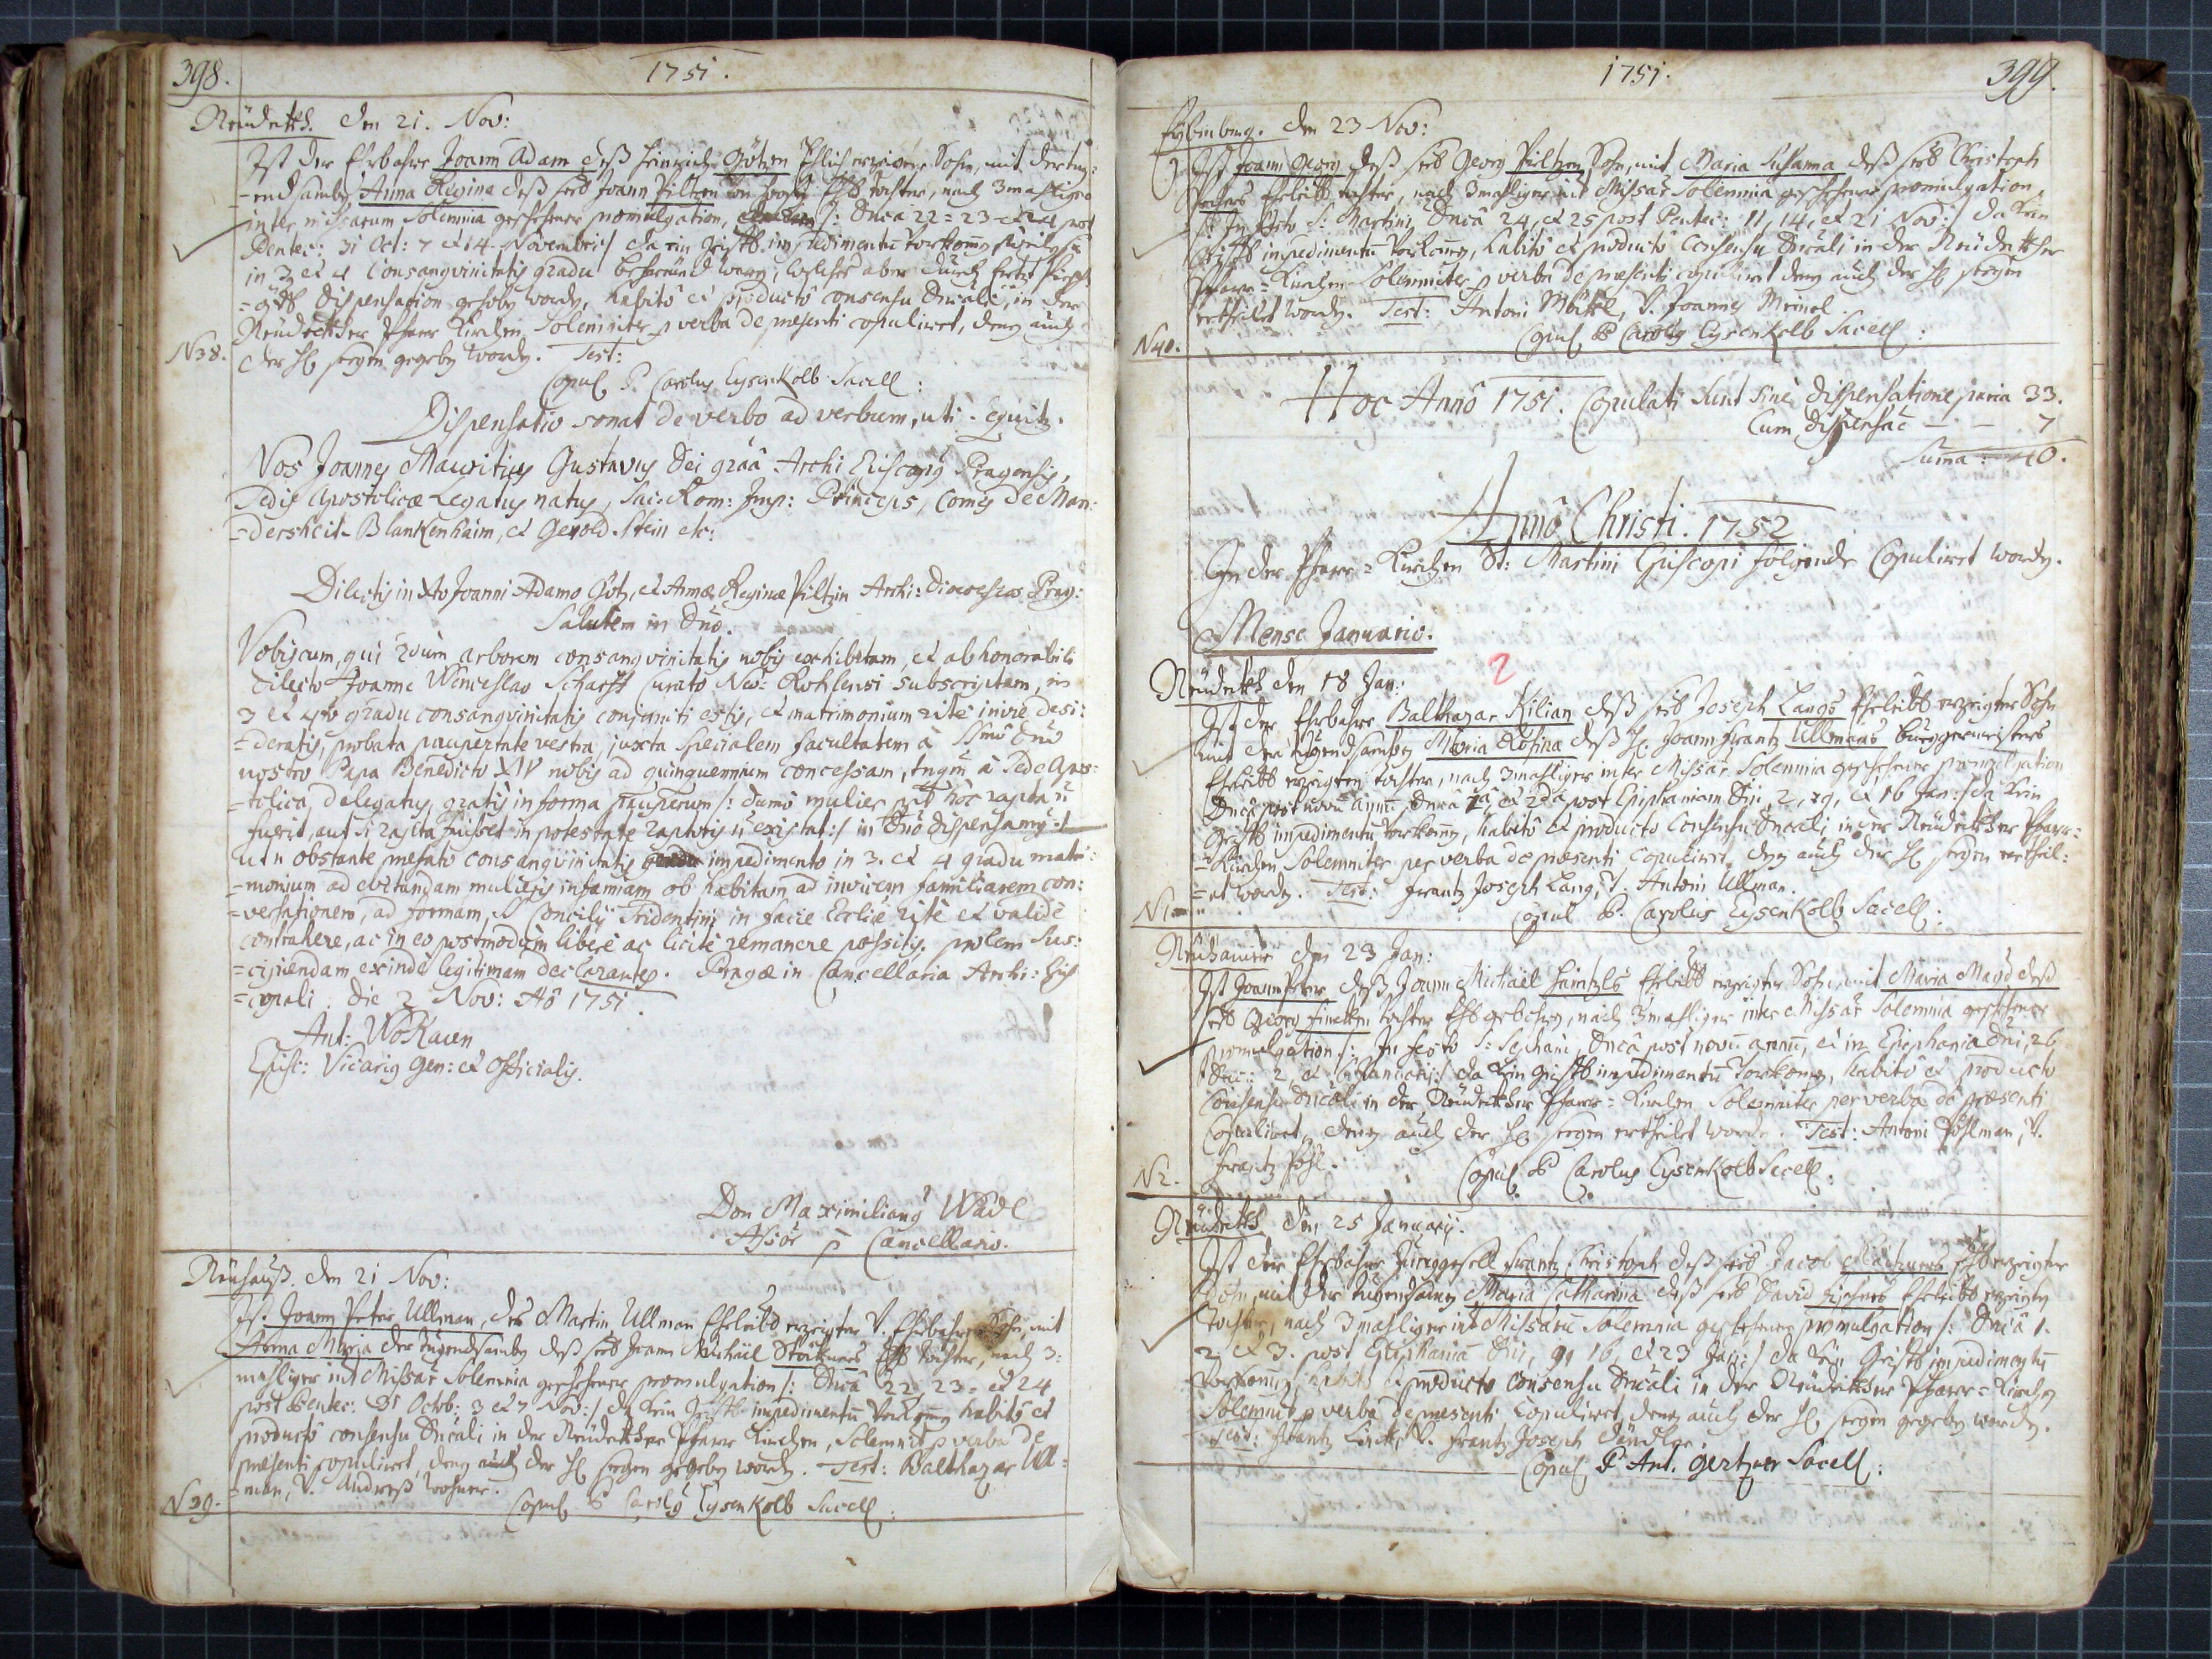 398.
1751.
Neüdekh. den 21. Nov:
Ist der Ehrbahre Joann Adam deß Heinrich Götzen Ehlich erzeigter Sohn, mit der tug:
=endsamben Anna Regina deß seel: Joann Piltzen Tochter, nach 3mahliger
inter missarum Solemnia geschehener promulgation, /: Dnca 22 = 23 = et 24 post
Pentec: 31 Oct: 7 et 14 Novembris :/ da ein impedimentū Vorkom̄en
in 3 et 4 Consangvinitatis gradu befreünd waren, welches aber durch
dispensation gehoben worden, habito et producto consensu Dnicali, in der
Neüdekher Pfarr Kirchen, Solemniter p verba de praesenti copuliret, denen auch
N 38.
der Hl: seegen gegeben worden. Test:
Copul: P. Carolus Eysenkolb Sacell:
Dispensatio sonat de verbo ad verbum, uti sequitur.
Nos Joannes Mauritius Gustavus Dei graâ Archi Episcopus Pragensis,
Sedis Apostolicae Legatus natus, Sac: Rom: Imp: Princeps, Comes de Man:
=dersheit-Blankenhaim, et Gerold-Stein etc:
Dilectis in Xto Joanni Adamo Götz, et Annae Reginae Piltzin Archi: Dioeceseos Prag:
Salutem in Dno.
Vobiscum, qui arborem consangvinitatis nobis exhibitam, et ab honorabili
dilecto Joanne Wenceslao Scharff Curato Neo: Rohlensi subscriptam, in
3 et 4to gradu consangvinitatis conjuncti estis, et matrimonium rite inire desi:
=deratis, probata paupertate vestra, juxta specialem facultatem à Ssmo Dno
nostro Papa Benedicto XIV nobis ad quinquennium concessam, tanquam à Sede Apos:
=tolica delegatus, gratis in forma pauperum /: dummodo mulier propter hoc rapta non
fuerit, aut si rapta fuisset in potestate raptoris non existat :/ in Dno dispensamus
ut non obstante praefato consangvinitatis impedimento in 3. et 4 gradu matri:
=monium ad evitandam mulieris infamiam ob habitam ad invicem familiarem con:
=versationem, ad formam S: Concilij Tridentini in facie Ecclae rite et valide
contrahere, ac in eo postmodum libere ac licite remanere possitis, prolem sus:
=cipiendam exinde legitimam declarantes. Pragae in Cancellaria Archi: Epis:
=copali. die 2 Nov: Aô 1751.
Ant: Wokaun
Episc: Vicarius Gen: et Officialis.
Don Maximilianus Wadl
Assor p Cancellario.
Neühauß. den 21 Nov:
Ist Joann Peter Ullman, des Martin Ullman Ehleibl: erzeigter V. Ehrbahrer Sohn, mit
Anna Maria der tugendsamben deß seel: Joann Michäel Stöckners Tochter, nach 3:
mahliger int Missar Solemnia geschehener promulgation /: Dnca 22 23 = et 24
post Pentec: 31 Octob: 3 et 7 Nov: :/ da kein impedimentū Vorkom̄en habito et
producto consensu Dnicali in der Neüdekher Pfarr Kirchen, Solemnit p verba de
praesenti copuliret, denen auch der Hl: seegen gegeben worden. Test: Balthazar Ull:
=man, V. Andreß
N 39.
Copul P Carolus Eysenkolb Sacell:
1751.
399.
den 23 Nov:
Ist Joann Georg deß seel: Georg Piltzen Sohn, mit Maria Susanna deß seel: Christoph
Ehleibl: tochter, nach 3mahliger int Missar Solemnia geschehener promulgation,
/: In festo S: Martini, Dnicâ 24, et 25 post Pentec: 11, 14, et 21 Nov: :/ da kein
impedimentū Vorkom̄en, habitô et productô Consensu Dnicali in der Neüdekher
Pfarr = Kirchen Solemniter p verba de praesenti copuliret denen auch der Hl: seegen
ertheilet worden. Test: Antoni V. Joannes Meinel.
N 40.
Copul P Carolus Eysenkolb Sacell:
Hoc Annô 1751. Copulati sunt sine dispensatione paria 33.
Cum dispensac — — 7
Suma: 40.
Annô Christi. 1752
In der Pfarr = Kirchen St: Martini Episcopi folgende Copuliret worden.
Mense Januario.
2
Neüdekh den 18 Jan:
Ist der Ehrbahre Balthazar Kilian deß seel: Joseph Langs Ehleibl: erzeigter Sohn
mit der tugendsamben Maria Rosina deß H: Joann Frantz Ullmans burgermeisters
Ehleibl: erzeigten tochter, nach 3mahliger inter Missar Solemnia geschehener promulgation
Dnicâ post novū annū, Dnicâ 1â et 2dâ post Epiphaniam Dni, 2, 9, et 16 Jan: :/ da kein
impedimentū Vorkom̄en, habitô et producto Consensu Dnicali, in der Neüdekher Pfarr=
=Kirchen Solemniter per verba de praesenti copuliret, denen auch der Hl: seegen ertheil:
=et worden. Test: Frantz Joseph Lang, V. Antoni Ullman.
N 1
Copul P. Carolus Eysenkolb Sacell:
Neühamer den 23 Jan:
Ist Joann Peter deß Joann Michäel Ehleibl: erzeigter Sohn, mit Maria Magd deß
seel: Georg tochter Ehl: gebohren, nach 3mahliger inter Missar Solemnia geschehener
promulgation /: In festo S: Stephani, Dnicâ post novū annū, et in Epiphania Dni, 26
Dec: 2 et 6 Januarij :/ da kein impedimentū Vorkom̄en, habitô et producto
Consensu Dnicali in der Neüdekher Pfarr = Kirchen Solemniter per verba de praesenti
Copuliret, denen auch der Hl: seegen ertheilet worden. Test: Antoni Pöhlman, V.
Frantz
N 2.
Copul P Carolus Eysenkolb Sacell:
Neüdekh den 25 Januarij.
Ist der Ehrbahre Junggesell Frantz Christoph deß seel: Jacob erzeigter
Sohn, mit der tugendsamen Maria Catharina deß seel: David Ehleibl: erzeigten
tochter, nach 3mahliger int Missarū Solemnia geschehener promulgation /: Dnicâ 1.
2 et 3. post Epiphaniā Dni, 9, 16 et 23 Jan: :/ da kein impedimentū
Vorkom̄en, habito et producto Consensu Dnicali in der Neüdekher Pfarr = Kirchen
Solemnit p verba de praesenti Copuliret, denen auch der Hl: seegen gegeben worden.
Test: Frantz V. Frantz Joseph
Copul P Ant. Gertzner Sacell: